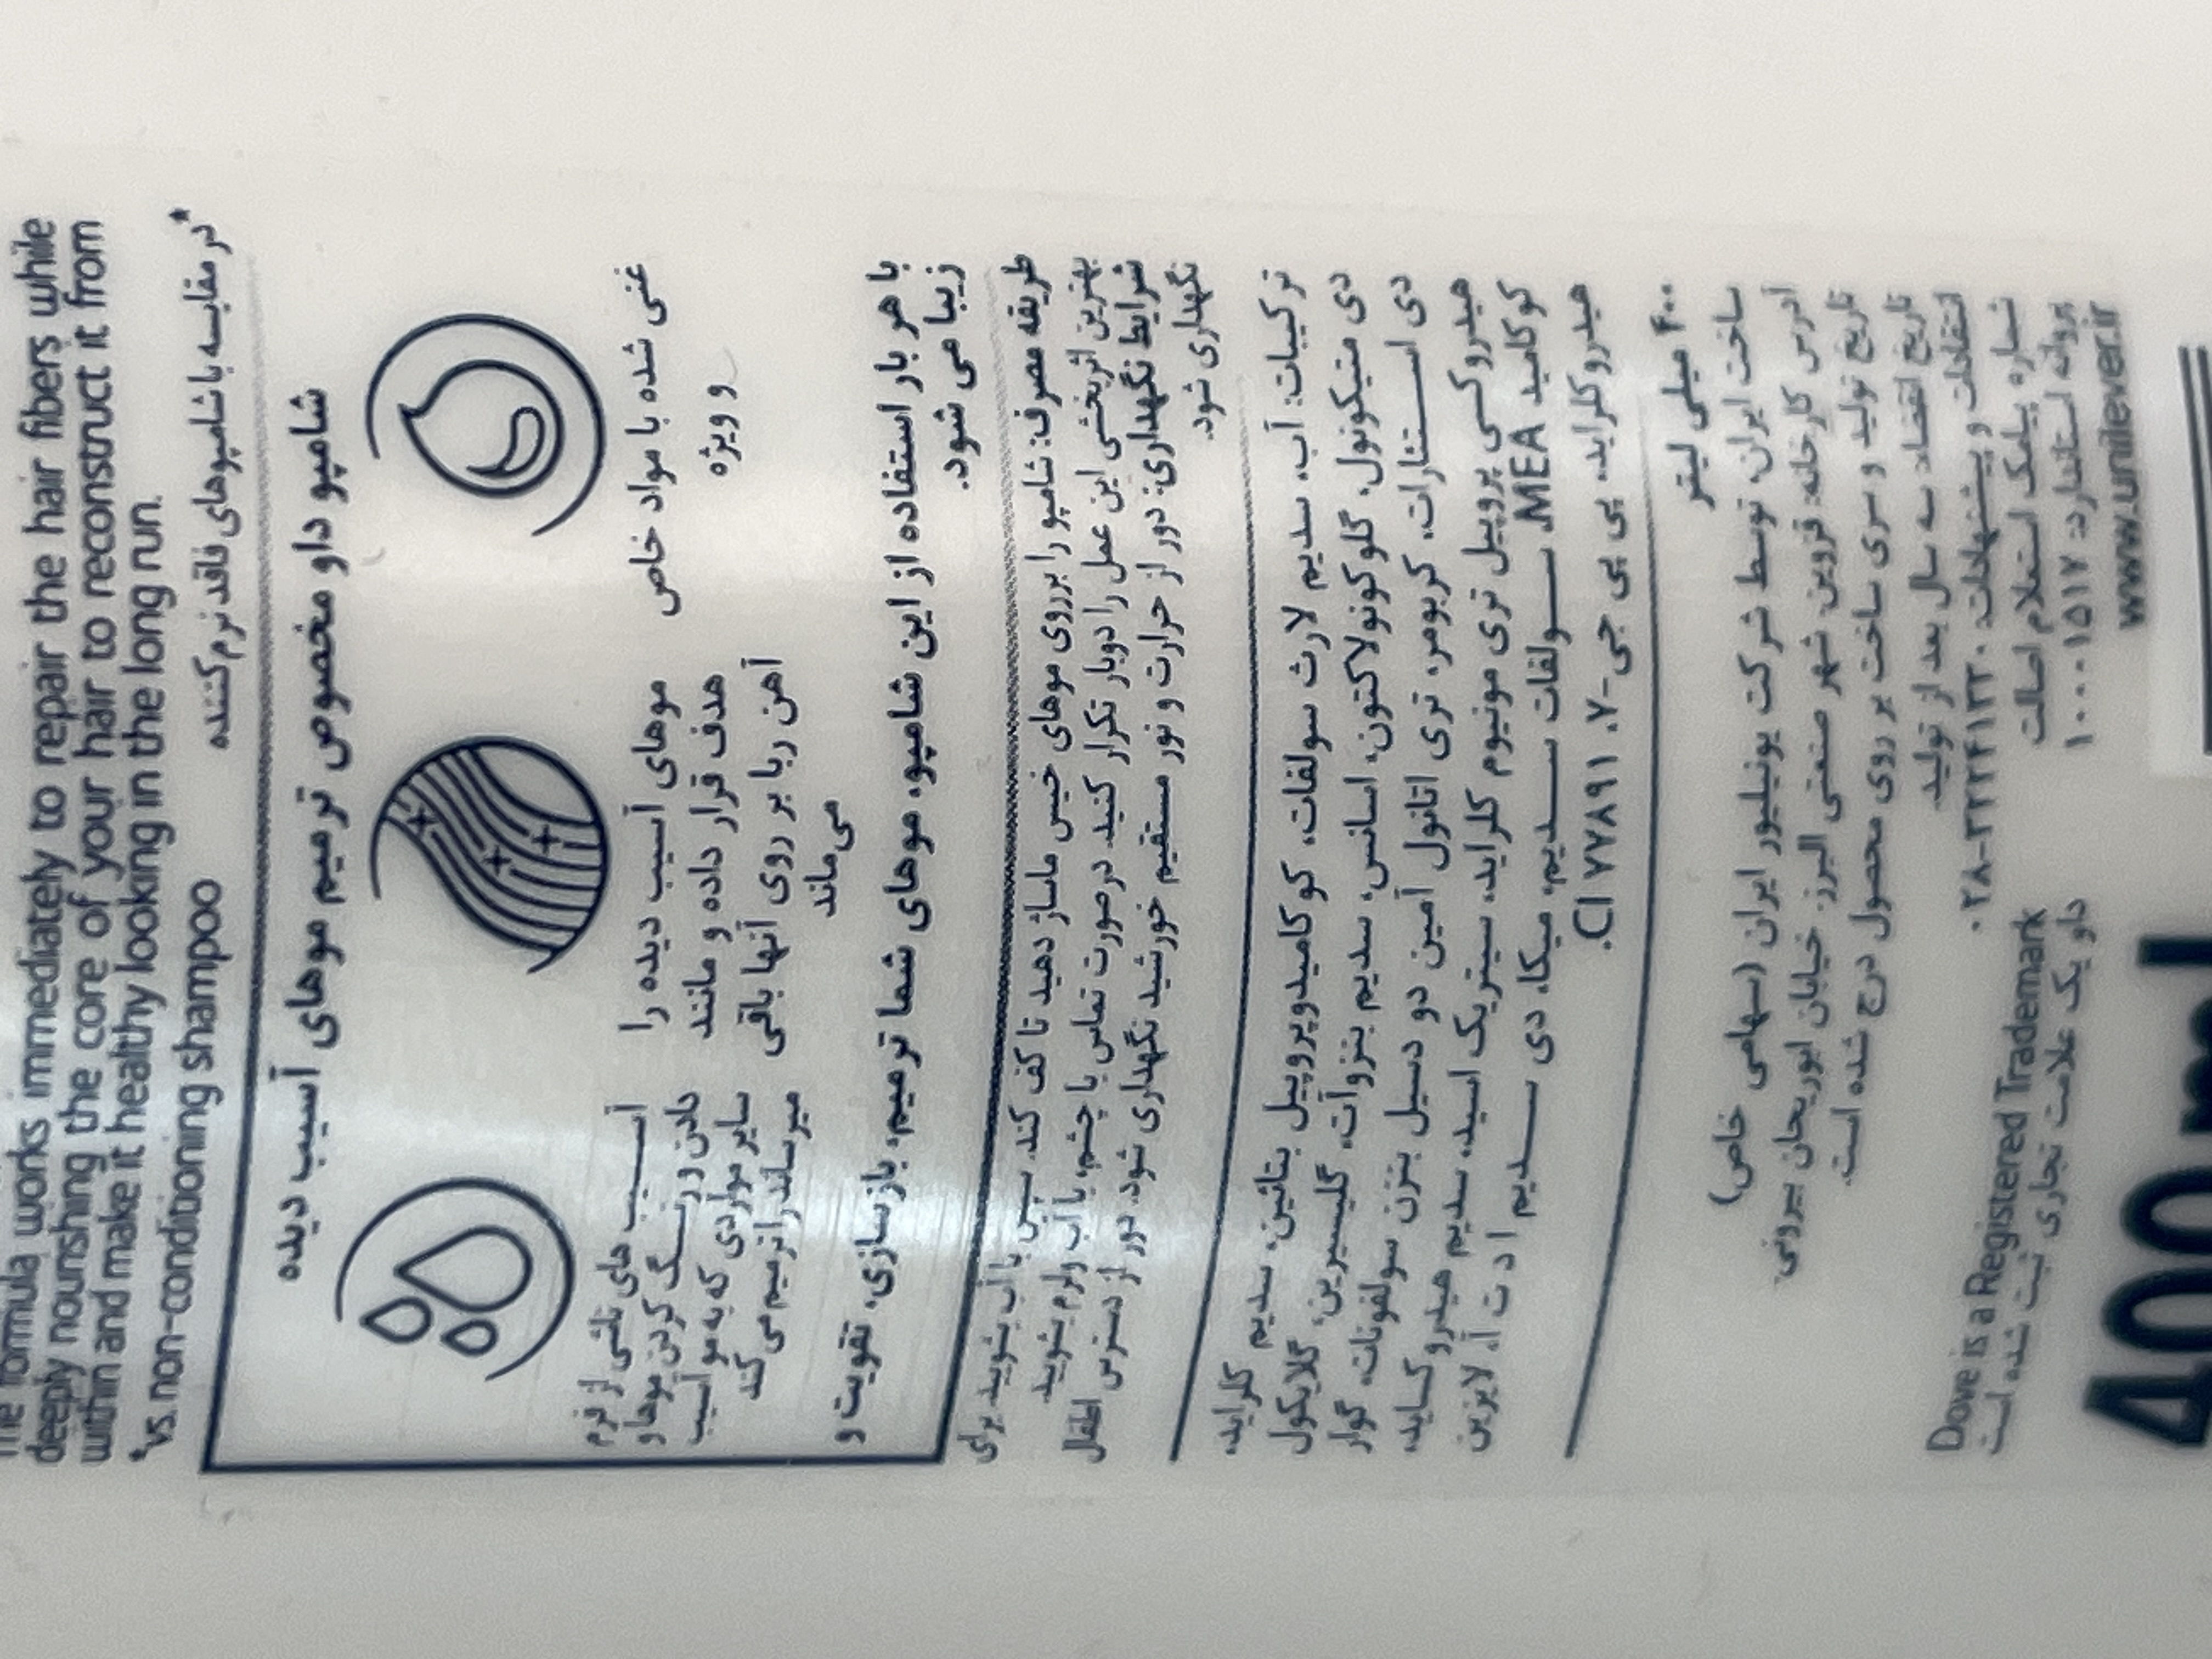 The formula works immediately to repair the hair fibers while
deeply nourishing the core of your hair to reconstruct it from
within and make it healthy looking in the long run.
*vs. non-conditioning shampoo
*در مقایسه با شامپوهای فاقد نرم‌کننده
شامپو داو مخصوص ترمیم موهای آسیب دیده
غنی شده با مواد خاص
و ویژه
موهای آسیب دیده را
هدف قرار داده و مانند
آهن ربا بر روی آنها باقی
می‌ماند
آسیب های ناشی از فرم
دادن و رنگ کردن موها و
سایر مواردی که به مو آسیب
میرساند را ترمیم می کند
با هر بار استفاده از این شامپو، موهای شما ترمیم، بازسازی، تقویت و
زیبا می شود.
طریقه مصرف: شامپو را برروی موهای خیس ماساژ دهید تا کف کند. سپس با آب بشویید. برای
بهترین اثربخشی این عمل را دوبار تکرار کنید. درصورت تماس با چشم، با آب ولرم بشویید.
شرایط نگهداری: دور از حرارت و نور مستقیم خورشید نگهداری شود. دور از دسترس اطفال
نگهداری شود.
ترکیبات: آب، سدیم لارث سولفات، کوکامیدوپروپیل بتائین، سدیم کلراید،
دی متیکونول، گلوکونولاکتون، اسانس، سدیم بنزوآت، گلیسیرین، گلایکول
دی استئارات، کربومر، تری اتانول آمین دو دسیل بنزن سولفونات، گوار
هیدروکسی پروپیل تری مونیوم کلراید، سیتریک اسید، سدیم هیدروکساید،
کوکامید MEA، سولفات سدیم، میکا، دی سدیم ا د ت آ، لایزین
هیدروکلراید، پی پی جی-۷، CI ۷۷۸۹۱.
۴۰۰ میلی لیتر
ساخت ایران، توسط شرکت یونیلیور ایران (سهامی خاص)
آدرس کارخانه: قزوین، شهر صنعتی البرز، خیابان ابوریحان بیرونی
تاریخ تولید و سری ساخت بر روی محصول درج شده است.
تاریخ انقضاء: سه سال بعد از تولید.
انتقادات و پیشنهادات: ۰۲۸-۳۲۲۴۱۳۳۰
شماره پیامک استعلام اصالت
پروانه استاندارد: ۱۰۰۰۰۱۵۱۷
www.unilever.ir
Dove is a Registered Trademark
داو یک علامت تجاری ثبت شده است
400 ml